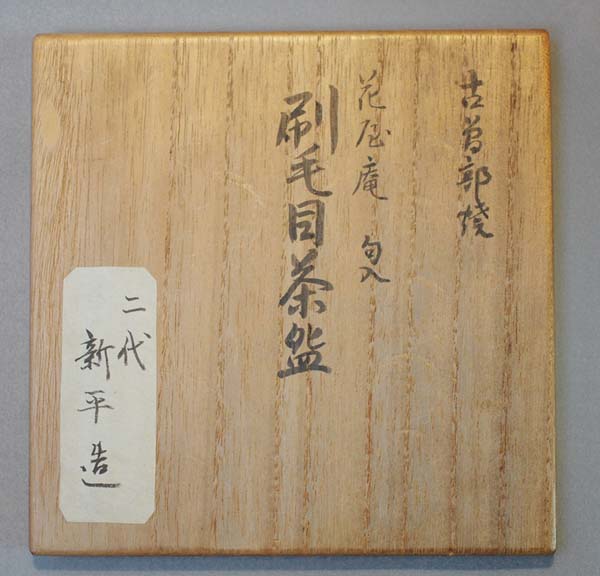 古曽部焼
花屋庵 句入
刷毛目茶盌
二代
新平造